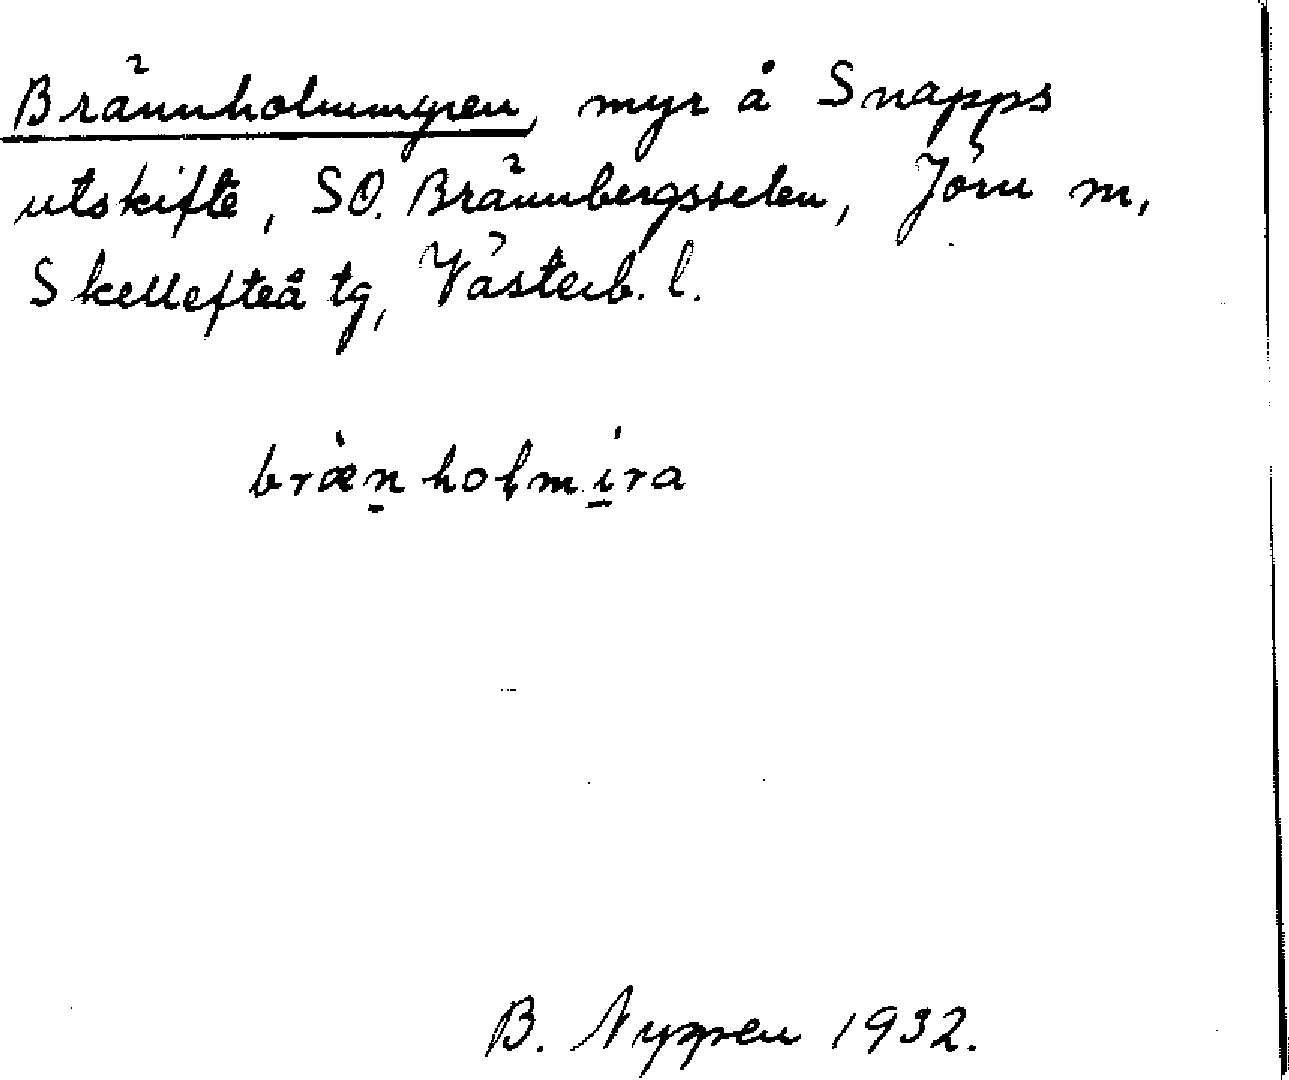 Brännholmmyren, myr å Snapps
utskifte, SO. Brännbergsselen, Jörn m,
Skellefteå tg, Västerb. l.
bræn̠ holm i̠ra
B. Nyppen 1932.